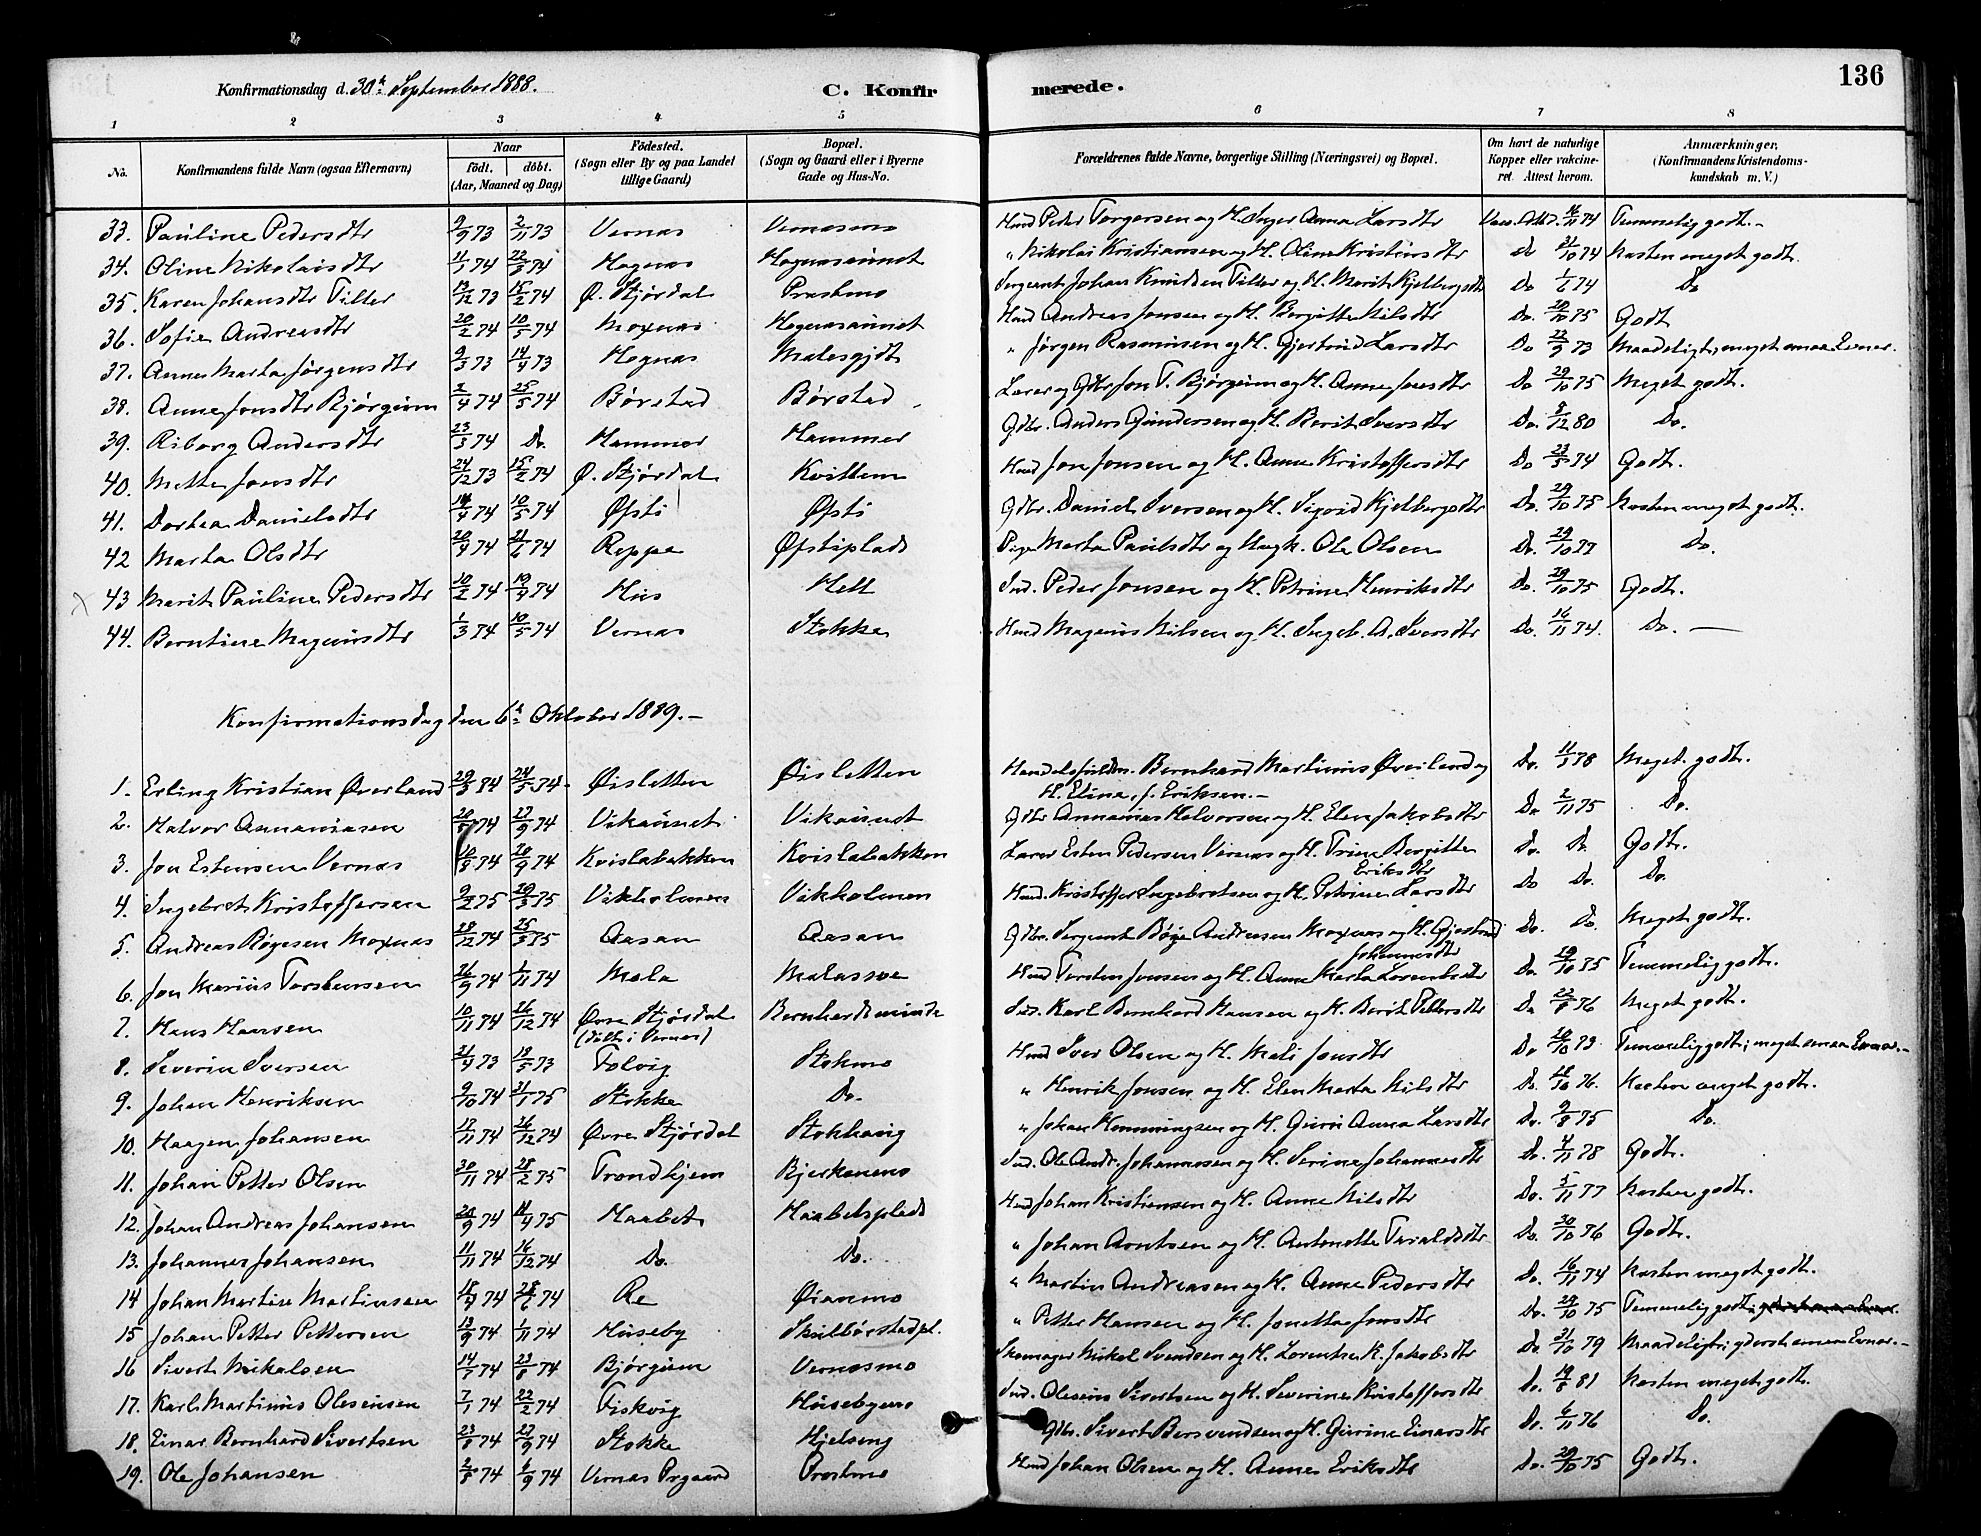 136
Konfirmationsdag d. 30te September 1888.
C. Konfirmerede.
1 2 3 4 5 6 7 8
No. Konfirmandens fulde Navn (ogsaa Efternavn) Naar født. døbt. (Aar, Maaned og Dag) Fødested. (Sogn eller By og paa Landet tillige Gaard) Bopæl. (Sogn og Gaard eller i Byerne Gade og Hus-No. Forældrenes fulde Navne, borgerlige Stilling (Næringsvei) og Bopæl. Om havt de naturlige Kopper eller vakcineret. Attest herom. Anmærkninger, (Konfirmandens Kristendomskundskab m. V.)
33. Pauline Pedersdtr 9/9 73 2/11 73 Vernæs Vernæsmo Hmd Peder Torgersen og H. Inger Anna Larsdtr Vacc. Att. 16/11 74 Temmelig godt.
34. Oline Nikolaisdtr 11/1 74 22/3 74 Hognæs Hognæsaunet " Nikolai Kristiansen og H. Oline Kristinsdtr do 31/10 74 Næsten meget godt.
35. Karen Johansdtr Tiller 13/12 73 15/2 74 Ø. Stjørdal Præstmo Sergeant Johan Knudsen Tiller og H. Marit Kjelbergsdtr Do 1/6 74 Do
36. Sofie Andreasdtr 20/2 74 10/5 74 Moxnæs Hognæsaunet Hmd Andreas Jonsen og H. Bergitte Nilsdtr Do. 20/10 75 Godt
37. Anne Marta Jørgensdtr 9/3 73 14/4 73 Hognæs Malesgjdt " Jørgen Rasmusen og H. Gjertrud Larsdtr Do 22/9 73 Maadeligt, meget smaa Evner.
38. Anne Jonsdtr Bjørgum 2/4 74 25/5 74 Børstad Børstad Lærer og Gdbr Jon T. Bjørgum og H. Anne Jonsdtr Do 29/10 75 Meget godt.
39. Riborg Andersdtr 23/3 74 Do. Hammer Hammer Gdbr. Anders Gundersen og H. Berit Iversdtr Do. 8/12 80 Do.
40. Mette Jonsdtr 24/12 73 15/2 74 Ø. Stjørdal Kvittem Hmd Jon Jonsen og H. Anne Kristoffersdtr Do 23/5 74 Godt.
41. Dortea Danielsdtr 14/4 74 10/5 74 Øfsti Øfsti Gdbr. Daniel Iversen og H. Sigrid Kjelbergsdtr Do. 29/10 75 Næsten meget godt.
42 Marta Olsdtr 20/4 74 21/6 74 Reppe Øfstiplads Pige Marta Paulsdtr og Ungk. Ole Olsen Do. 29/10 77 Do.
43 Marit Pauline Pedersdtr 10/2 74 19/4 74 Hus Hell Ind. Peder Jonsen og H. Petrine Henriksdtr Do. 29/10 75 Godt.
44. Berntine Magnusdtr 1/3 74 10/5 74 Vernæs Stokke Hmd Magnus Nilsen og H. Ingeb. A. Iversdtr Do. 16/11 74. Do.
Konfirmationsdag den 6te Oktober 1889.
1. Erling Kristian Øverland 29/3 84 24/5 74 Øisletten Øisletten Handelsfuldm. Bernhard Martinius Øverland og Do. 11/3 78 Meget godt.
H. Eline, f. Eriksen.
2. Halvor Annaniasen 28/5 74 27/9 74 Vikaunet Vikaunet Gdbr Annanias Halvorsen og H. Elen Jakobsdtr Do. 2/11 75 Do.
3. Jon Estensen Vernæs 16/8 74 20/9 74 Kvislabakken Kvislabakken Lærer Esten Pedersen Vernæs og H. Trine Bergitte Do. Do. Godt.
Eriksdtr
4. Ingebret Kristoffersen 9/2 75 29/3 75 Vikholmen Vikholmen Hmd. Kristoffer Ingebretsen og H. Petrine Larsdtr Do Do. Do.
5. Andreas Børgesen Moxnæs 28/12 74 25/3 75 Aasan Aasan Gdbr. Sergeant Børge Andreasen Moxnæs og H. Gjertrud Do. Do. Meget godt.
Johannesdtr
6. Jon Marius Torstensen 26/9 74 1/11 74 Mæla Mælasvæ Hmd Torsten Jonsen og H. Anne Marta Lorentsdtr Do. 29/10 75 Temmelig godt.
7. Hans Hansen 10/11 74 26/12 74 Øvre Stjørdal Bernhardsminde Ind. Karl Bernhard Hansen og H. Berit Pettersdtr Do 22/8 76 Meget godt.
(døbt i Vernæs)
8. Severin Iversen 21/4 73 18/5 73 Folvig Stokmo Hmd Iver Olsen og H. Mali Jonsdtr Do 20/10 73 Temmelig godt; meget smaa Evner.
9. Johan Henriksen 9/10 74 31/1 75 Stokke Do. " Henrik Jonsen og H. Elen Marta Nilsdtr Do. 28/10 76. Næsten meget godt.
10. Haagen Johansen 17/11 74 26/12 74 Øvre Stjørdal Stokhaug " Johan Henningsen og H. Guru Anna Larsdtr Do. 9/8 75 Do.
11. Johan Petter Olsen 30/11 74 28/2 75 Trondhjem Bjerkanmo Ind. Ole Andr. Johannesen og H. Serine Johannesdtr Do. 4/11 78 Godt.
12. Johan Andreas Johansen 20/9 74 11/4 75 Haabet Haabetsplads Hmd Johan Kristiansen og H. Anne Nilsdtr Do. 5/11 77 Næsten godt.
13. Johannes Johansen 11/11 74 16/12 74 Do. Do. " Johan Arntsen og H. Antonette Tarialdsdtr Do. 30/10 76 Godt.
14 Johan Martin Martinsen 18/4 74 28/6 74 Re Øianmo " Martin Andreasen og H. Anne Pedersdtr Do. 16/11 74 Næsten meget godt.
15 Johan Petter Pettersen 13/9 74 1/11 74 Huseby Skulbørstadpl. " Petter Hansen og H. Jonetta Jonsdtr Do. 29/10 75 Temmelig godt;
16 Sivert Mikalsen 14/7 74 23/8 74 Bjørgum Vernæsmo Skomager Mikal Svendsen og H. Lorentse K. Jakobsdtr Do 31/10 79 Maadeligt; yderst smaa Evner.
17. Karl Martinus Olausen 7/1 74 22/2 74 Fiskvig Husebymo Ind. Olaus Sivertsen og H. Severine Kristoffersdtr Do. 19/8 81 Næsten meget godt.
18. Einar Bernhard Sivertsen 23/8 74 27/9 74 Stokke Hjelseng Gdbr. Sivert Bersvendsen og H. Gurine Einarsdtr Do. 6/11 76 Do.
19. Ole Johansen 2/8 74 6/9 74 Vernæs Prgaard Præstmo Hmd Johan Olsen og H. Anne Eriksdtr Do. 29/10 75 Godt.